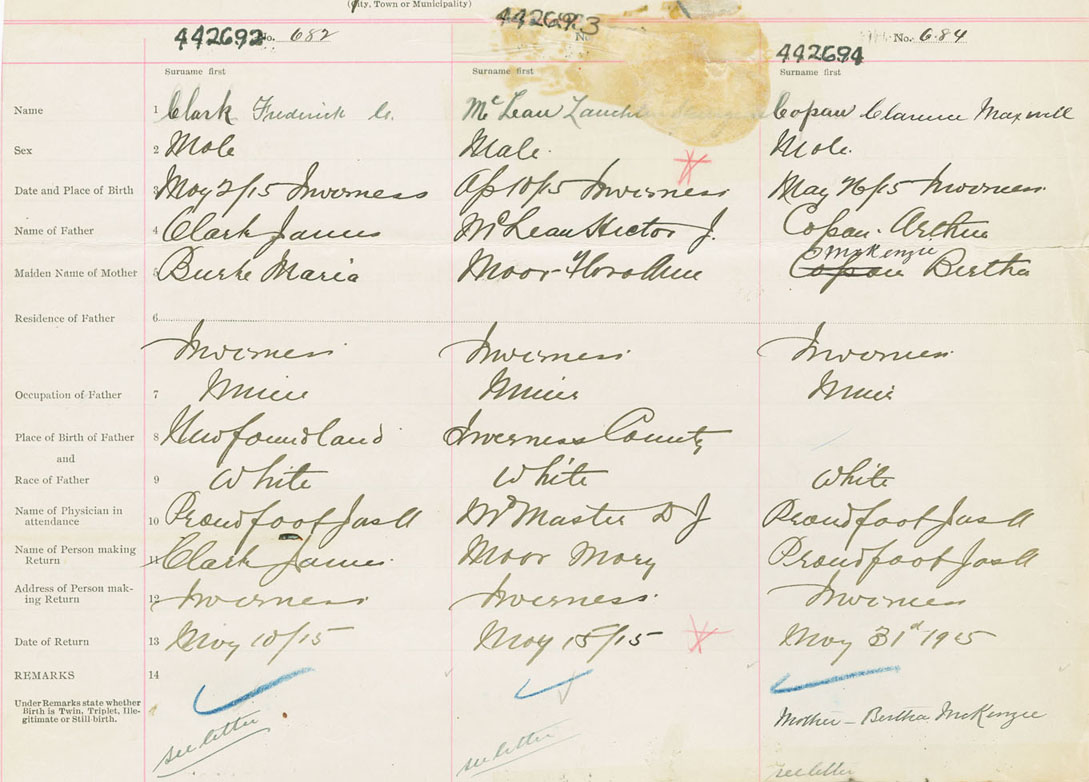 (City, Town or Municipality)
442692 No. 682
442693 No.
442694 No. 684
Surname first Surname first Surname first
Name 1 Clark Frederick C. McLean Lauchlin Copan Clarence Maxwill
Sex 2 Male Male. Male.
Date and Place of Birth 3 May 2/15 Inverness Ap 10/15 Inverness May 26/15 Inverness
Name of Father 4 Clark James McLean Hector J. Copan. Arthur
McKenzie
Maiden Name of Mother 5 Burke Maria Moor Flora Ann Copan Bertha
Residence of Father 6
Inverness Inverness Inverness
Occupation of Father 7 Miner Miner Miner
Place of Birth of Father 8 Newfoundland Inverness County
and
Race of Father 9 White White White
Name of Physician in
attendance 10 Proudfoot Jas A McMaster D J Proudfoot Jas A
Name of Person making
Return 11 Clark James Moor Mary Proudfoot Jas A
Address of Person mak-
ing Return 12 Inverness Inverness Inverness
Date of Return 13 May 10/15 May 15/15 May 31st 1915
REMARKS 14
Under Remarks state whether
Birth is Twin, Triplet, Ille-
gitimate or Still-birth.
Mother - Bertha McKenzie
see letter see letter see letter